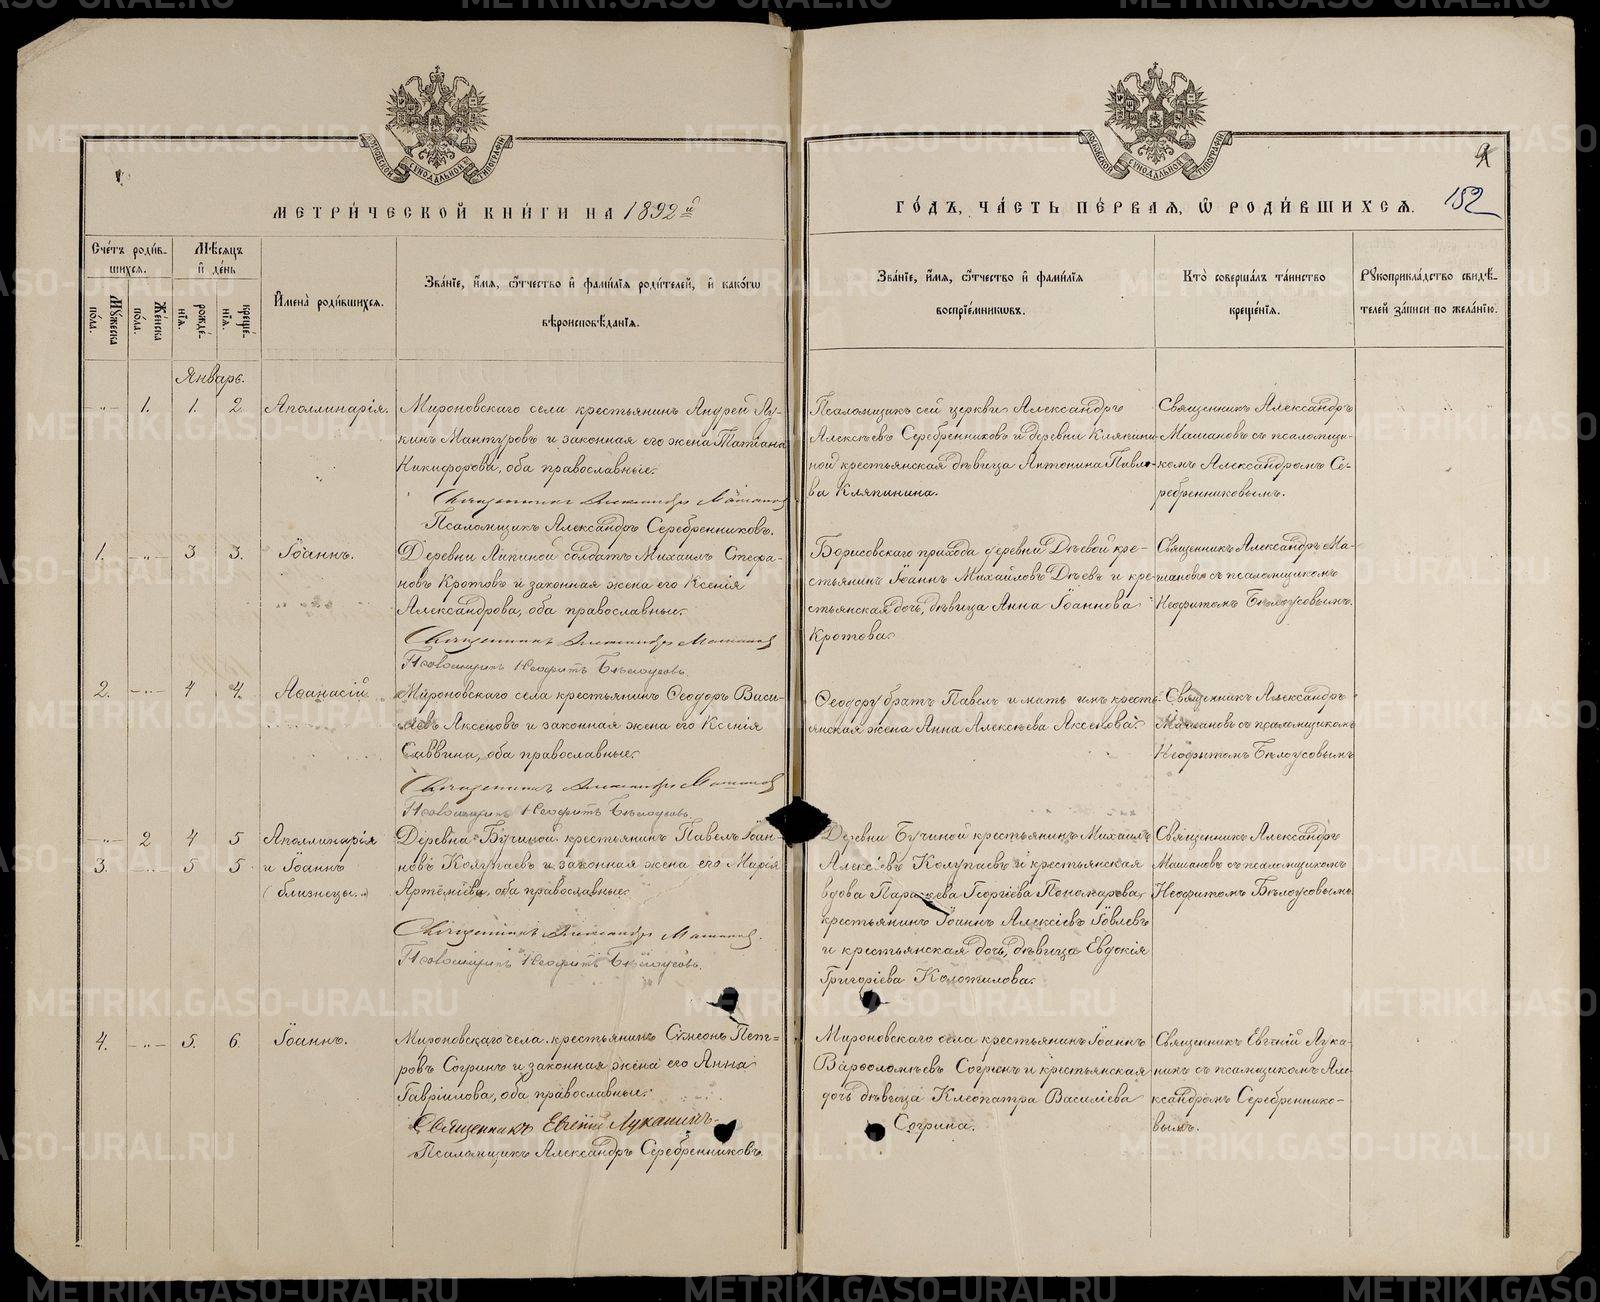 МЕТРИ́ЧЕСКОЙ КНИ́ГИ НА 1892й
ГО́ДЪ, ЧА́СТЬ ПЕ́РВАЯ, Ѡ РОДИ́ВШИХСѦ.
152
Сче́тъ роди́в-
шихсѧ.
Мѣ́сѧцъ
и҆ де́нь
Мꙋ́жеска по́ла.
Же́нска по́ла.
рожде́-нїѧ.
креще́-нїѧ.
И҆мена̀ роди́вшихсѧ.
Зва́нїе, и҆́мѧ, ѻ҆́тчество и҆ фами́лїѧ роди́телей, и҆ како́гѡ
вѣроисповѣ́данїѧ.
Зва́нїе, и҆́мѧ, ѻ҆́тчество и҆ фами́лїѧ
воспрїе́мникѡвъ.
Кто̀ соверша́лъ та́инство
креще́нїѧ.
Рꙋкоприкла́дство свидѣ́-
телей за́писи по жела́нїю.
Январь.
-„- 1. 1. 2. Аполлинарія.
Мироновскаго села крестьянинъ Андрей Лу-
кинъ Мантуровъ и законная его жена Татіана
Никифорова, оба православные.
Священникъ Александръ Машановъ
Псаломщикъ Александръ Серебренниковъ.
Псаломщикъ сей церкви Александръ
Алексѣевъ Серебренниковъ и деревни Кляпини-
ной крестьянская дѣвица Антонина Павло-
ва Кляпинина.
Священникъ Александръ
Машановъ съ псаломщи-
комъ Александромъ Се-
ребренниковымъ.
1. -„- 3 3. Іоаннъ.
Деревни Липиной солдатъ Михаилъ Стефа-
новъ Кротовъ и законная жена его Ксенія
Александрова, оба православные.
Священникъ Александръ Машановъ
Псаломщикъ Неофитъ Бѣлоусовъ.
Борисовскаго прихода деревни Дѣевой кре-
стьянинъ Іоаннъ Михайловъ Дѣевъ и кре-
стьянская дочь, дѣвица Анна Іоаннова
Кротова.
Священникъ Александръ Ма-
шановъ съ псаломщикомъ
Неофитомъ Бѣлоусовымъ.
2. -„- 4 4. Аѳанасій
Мироновскаго села крестьянинъ Ѳеодоръ Васи-
льевъ Аксеновъ и законная жена его Ксенія
Саввина, оба православные.
Священникъ Александръ Машановъ
Псаломщикъ Неофитъ Бѣлоусовъ.
Ѳеодору братъ Павелъ и мать ихъ кресть-
янская жена Анна Алексѣева Аксенова.
Священникъ Александръ
Машановъ съ псаломщикомъ
Неофитомъ Бѣлоусовымъ
-„- 2 4 5 Аполлинарія
3. -„- 5 5 и Іоаннъ
(близнецы.)
Деревни Бучиной крестьянинъ Павелъ Іоан-
новъ Колупаевъ и законная жена его Марія
Артеміева, оба православные.
Священникъ Александръ Машановъ.
Псаломщикъ Неофитъ Бѣлоусовъ.
Деревни Бучиной крестьянинъ Михаилъ
Алексѣевъ Колупаевъ и крестьянская
вдова Параскева Георгіева Пономарева,
крестьянинъ Іоаннъ Алексіевъ Іовлевъ
и крестьянская дочь, дѣвица Евдокія
Григоріева Колотилова.
Священникъ Александръ
Машановъ съ псаломщикомъ
Неофитомъ Бѣлоусовымъ.
4. -„- 5. 6. Іоаннъ.
Мироновскаго села крестьянинъ Сѵмеонъ Пет-
ровъ Согринъ и законная жена его Анна
Гавріилова, оба православные.
Священникъ Евгеній Луканинъ.
Псаломщикъ Александръ Серебренниковъ.
Мироновскаго села крестьянинъ Іоаннъ
Варѳоломѣевъ Согринъ и крестьянская
дочь дѣвица Клеопатра Василіева
Согрина.
Священникъ Евгеній Лука-
нинъ съ псаломщикомъ Але-
ксандромъ Серебреннико-
вымъ.
METRIKI.GASO-URAL.RU